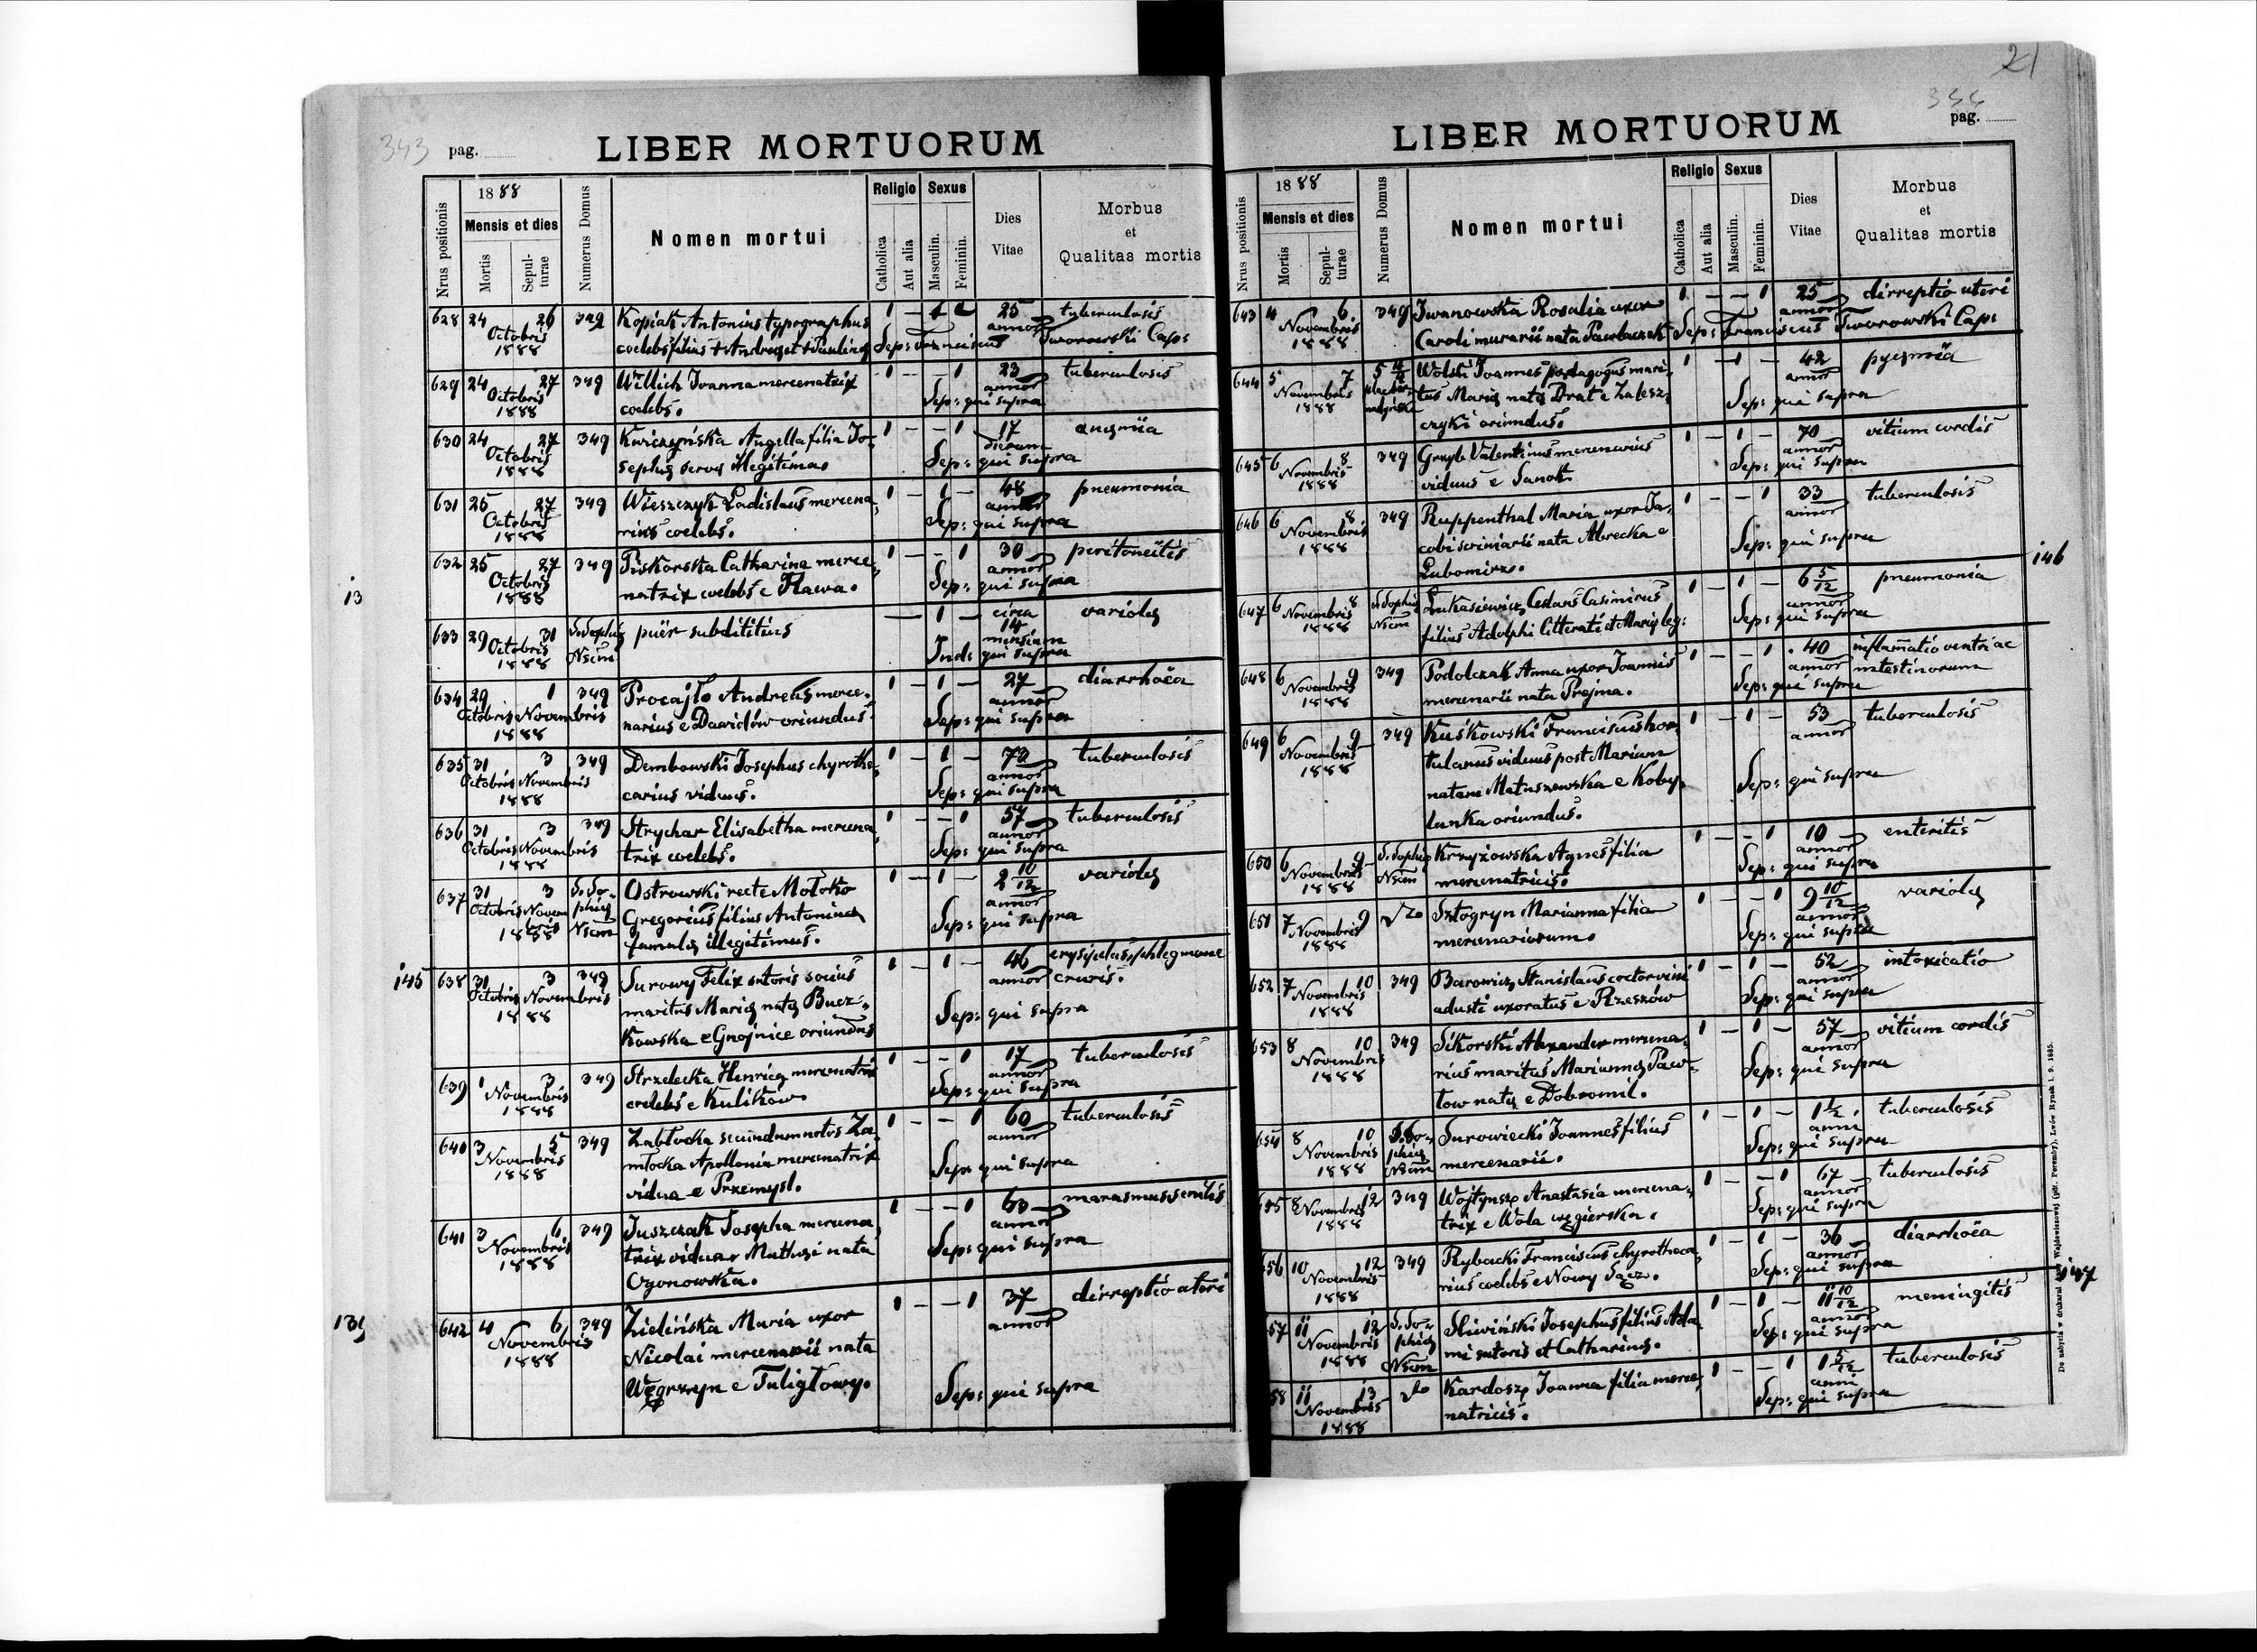 343 pag.
LIBER MORTUORUM
Nrus positionis
1888
Mensis et dies
Mortis
Sepulturae
Numerus Domus
Nomen mortui
Religio
Catholica
Aut alia
Sexus
Masculin.
Feminin.
Dies Vitae
Morbus et Qualitas mortis
628 24 26 349 Kopiak Antonius typographus 1 - 1 25 tuberculosis
Octobris annor
1888 coelebs filius + Andreae et + Paulinae Sep: Franciscus Tworowski Cap:
629 24 27 349 Willich Joanna mercenatrix 1 - - 1 23 tuberculosis
Octobris annor
1888 coelebs. Sep: qui supra
630 24 27 349 Kwiczyńska Angella filia Jo- 1 - - 1 17 anaemia
Octobris dierum
1888 sephae servae illegitima Sep: qui supra
631 25 27 349 Wieszczyk Ladislaus mercena- 1 - 1 - 48 pneumonia
Octobris annor
1888 rius coelebs. Sep: qui supra
632 25 27 349 Piskorska Catharina merce- 1 - - 1 30 peritoneitis
Octobris annor
1888 natrix coelebs e Rawa. Sep: qui supra
633 29 31 S. Sophiae Nsim puer subdititius - 1 - circa 14 variolae
Octobris mensium
1888 Ind: qui supra
634 29 1 349 Procajło Andreas merce- 1 - 1 - 27 diarrhöea
Octobris Novembris annor
1888 narius e Dawidów oriundus. Sep: qui supra
635 31 3 349 Dembowski Josephus chyrothe- 1 - 1 - 73 tuberculosis
Octobris Novembris annor
1888 carius viduus. Sep: qui supra
636 31 3 349 Strychar Elisabetha mercena- 1 - - 1 57 tuberculosis
Octobris Novembris annor
1888 trix coelebs. Sep: qui supra
637 31 3 S. Sophiae Nsim Ostrowski recte Mołoko 1 - 1 - 2 10/12 variolae
Octobris Novembris Gregorius filius Antoninae annor
1888 famulae illegitimus. Sep: qui supra
145 638 31 3 349 Surowy Felix sutoris socius 1 - 1 - 46 erysipelas, phlegmone
Octobris Novembris maritus Mariae natae Bucz- annor cruris.
1888 kowska e Gnojnice oriundus Sep: qui supra
639 1 3 349 Strzelecka Henrica mercenatrix 1 - - 1 17 tuberculosis
Novembris annor
1888 coelebs e Kulików. Sep: qui supra
640 3 5 349 Zabłocka secundum notos Za- 1 - - 1 60 tuberculosis
Novembris młocka Apollonia mercenatrix annor
1888 vidua e Przemysl. Sep: qui supra
641 3 6 349 Juszczak Josepha mercena- 1 - - 1 63 marasmus senilis
Novembris trix vidua nata annor
1888 Ogonowska. Sep: qui supra
139 642 4 6 349 Zielińska Maria uxor 1 - - 1 37 dirreptio uteri
Novembris Nicolai mercenarii nata annor
1888 Węgrzyn e Tuligłowy. Sep: qui supra
21
344 pag.
LIBER MORTUORUM
Nrus positionis
1888
Mensis et dies
Mortis
Sepulturae
Numerus Domus
Nomen mortui
Religio
Catholica
Aut alia
Sexus
Masculin.
Feminin.
Dies Vitae
Morbus et Qualitas mortis
643 4 6 349 Iwanowska Rosalia uxor 1 - - 1 25 dirreptio uteri
Novembris annor
1888 Caroli murarii nata Pawłaczek Sep: Franciscus Tworowski Cap:
644 5 7 5 4/4 Wolski Joannes paedagogus mari- 1 - 1 - 42 pyaemia
Novembris tus Mariae natae Drat e Zalesz- annor
1888 czyki oriundus. Sep: qui supra
645 6 8 349 Grzyb Valentinus mercenarius 1 - 1 - 70 vitium cordis
Novembris annor
1888 viduus e Sanok. Sep: qui supra
646 6 8 349 Ruppenthal Maria uxor Ja- 1 - - 1 33 tuberculosis
Novembris cobi scriniarii nata Mbrecka e annor
1888 Lubomirz. Sep: qui supra
146
647 6 8 S. Sophiae Nsim Łukasiewicz Ceslaus Casimirus 1 - 1 - 6 5/12 pneumonia
Novembris annor
1888 filius Adolphi litterati et Mariae leg: Sep: qui supra
648 6 9 349 Podolczak Anna uxor Joannis 1 - - 1 40 inflamatio ventri ac
Novembris annor intestinorum
1888 mercenarii nata Prejma. Sep: qui supra
649 6 9 349 Kuśkowski Franciscus hor- 1 - 1 - 53 tuberculosis
Novembris tulanus viduus post Mariam annor
1888 natam Matuszewska e Koby- Sep: qui supra
lanka oriundus.
650 6 9 S. Sophiae Nsim Krzyżowska Agnes filia 1 - - 1 10 enteritis
Novembris annor
1888 mercenatricis. Sep: qui supra
651 7 9 dto Sztogryn Marianna filia 1 - - 1 9 10/12 variolae
Novembris annor
1888 mercenariorum. Sep: qui supra
652 7 10 349 Barowicz Stanislaus coctor vini 1 - 1 - 52 intoxicatio
Novembris annor
1888 adusti uxoratus e Rzeszów Sep: qui supra
653 8 10 349 Sikorski Alexander mercena- 1 - 1 - 57 vitium cordis
Novembris rius maritus Mariannae Paw- annor
1888 tow natae e Dobromil. Sep: qui supra
654 8 10 S. Sophiae Nsim Surowiecki Joannes filius 1 - 1 - 1 1/2 tuberculosis
Novembris anni
1888 mercenarii. Sep: qui supra
655 8 12 349 Wojtynsz Anastasia mercena- 1 - - 1 67 tuberculosis
Novembris annor
1888 trix e Wola węgierska. Sep: qui supra
656 10 12 349 Rybacki Franciscus chyrotheca- 1 - 1 - 36 diarrhöea
Novembris annor
1888 rius coelebs e Nowy Sącz. Sep: qui supra
147
57 11 12 S. Sophiae Nsim Sliwiński Josephus filius Ada- 1 - 1 - 11 10/12 meningitis
Novembris annor
1888 mi sutoris et Catharinae. Sep: qui supra
58 11 13 dto Kardosz Joanna filia merce- 1 - - 1 1 5/12 tuberculosis
Novembris anni
1888 natricis. Sep: qui supra